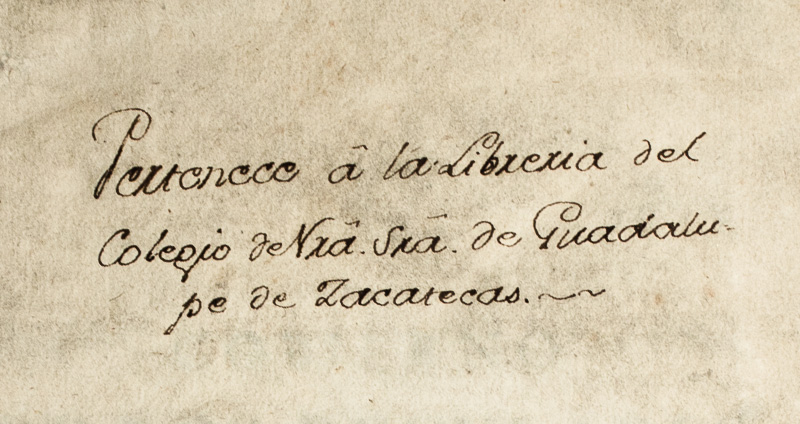 Pertenece â la Libreria del
Colegio de Nrâ. Srâ. de Guadalu-
pe de Zacatecas.